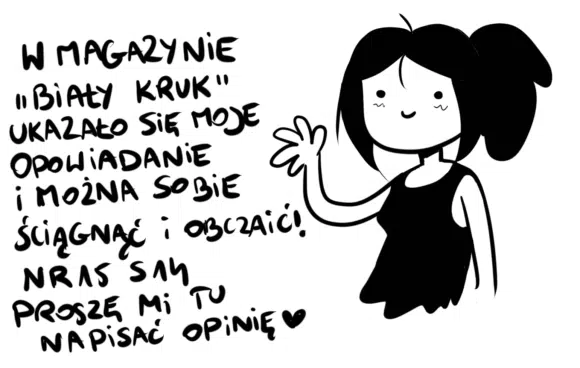 W MAGAZYNIE
„BIAŁY KRUK"
UKAZAŁO SIĘ MOJE
OPOWIADANIE
I MOŻNA SOBIE
ŚCIĄGNĄĆ I OBCZAIĆ!
NR15 S14
PROSZĘ MI TU
NAPISAĆ OPINIĘ ♥